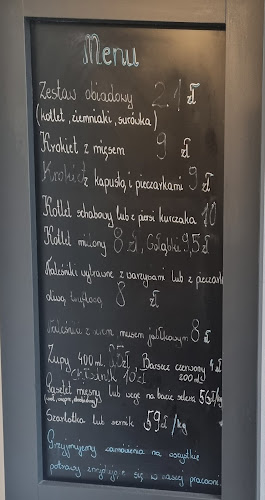 Menu
Zestaw obiadowy 21 zł
(kotlet, ziemniaki, surówka)
Krokiet z mięsem 9 zł
Krokiet z kapustą i pieczarkami 9 zł
Kotlet schabowy lub z piersi kurczaka 10
Kotlet mielony 8 zł, Gołąbki 9,5 zł
Naleśniki wytrawne z warzywami lub z pieczark
oliwą 8 zł
Naleśniki z musem jabłkowym 8 zł
Zupy 400 ml, Barszcz czerwony 4 zł
10 zł 200 ml
Pasztet mięsny lub wege na bazie selera 56 zł/kg
Szarlotka lub sernik 59 zł/kg
Przyjmujemy zamówienia na wszystkie
potrawy znajdujące się w naszej pracowni